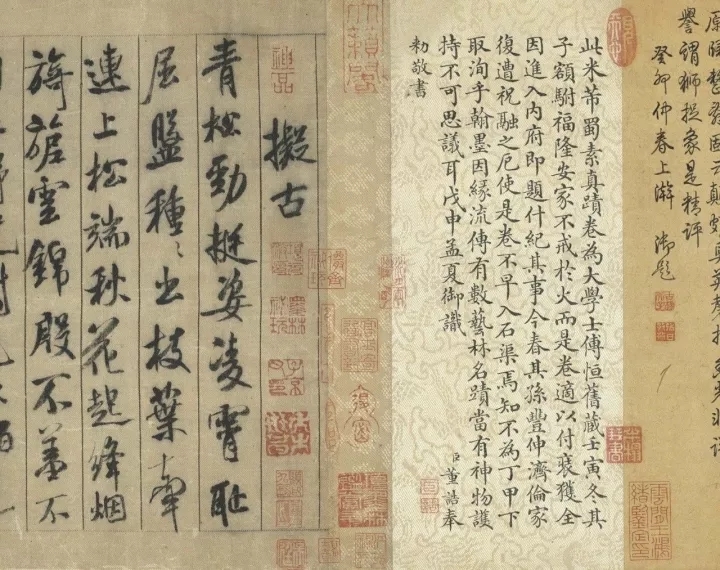 譽謂獅捉象是精評
癸卯仲春上澣 御題
此米芾蜀素真蹟卷為大學士傅恒舊藏壬寅冬其
子額駙福隆安家不戒於火而是卷適以付裝獲全
因進入內府即題什紀其事今春其孫豐伸濟倫家
復遭祝融之厄使是卷不早入石渠焉知不為丁甲下
取洵乎翰墨因緣流傳有數藝林名蹟當有神物護
持不可思議耳戊申孟夏御識
臣董誥奉
勅敬書
擬古
青松勁挺姿凌霄耻
屈盤種〻出枝葉牽
連上松端秋花起絳烟
旖旎雲錦殿不羞不